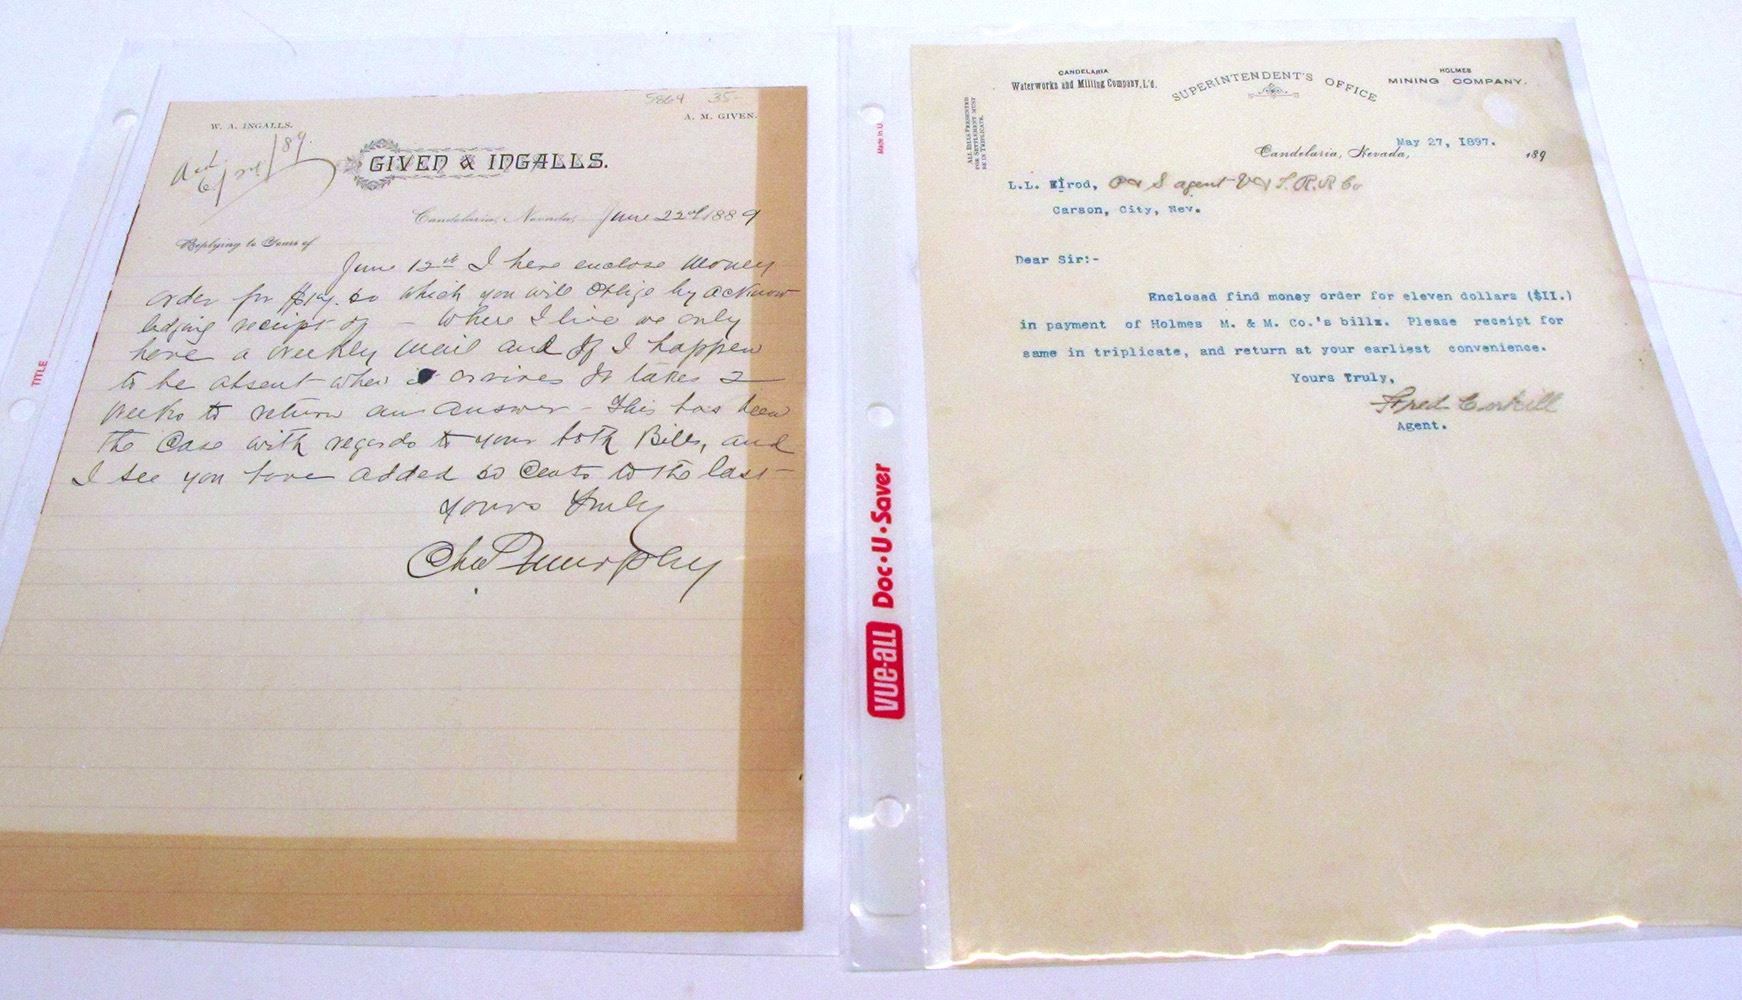 5864 35-
W. A. INGALLS.
A. M. GIVEN.
GIVEN & INGALLS.
Candelaria, Nevada, June 22nd 1889
Replying to Yours of
June 12th I here enclose Money
order for which you will oblige by acknow
ledging receipt of – Where I live we only
have a weekly mail and If I happen
to be absent when it arrives It takes 2
weeks to return an answer – This has been
the Case with regards to your both Bills, and
I see you have added 50 Cents to the last –
Yours Truly
Murphy
TITLE
Made in U.
VUE-ALL Doc•U•Saver
CANDELARIA
Waterworks and Milling Company, L'd.
SUPERINTENDENT'S OFFICE
HOLMES
MINING COMPANY.
ALL BILLS PRESENTED
FOR SETTLEMENT MUST
BE IN TRIPLICATE.
May 27, 1897.
Candelaria, Nevada, 189
L.L. Elrod, P & S agent V & T. R.R Co
Carson, City, Nev.
Dear Sir:-
Enclosed find money order for eleven dollars ($II.)
in payment of Holmes M. & M. Co.'s billz. Please receipt for
same in triplicate, and return at your earliest convenience.
Yours Truly,
Fred Corkill
Agent.